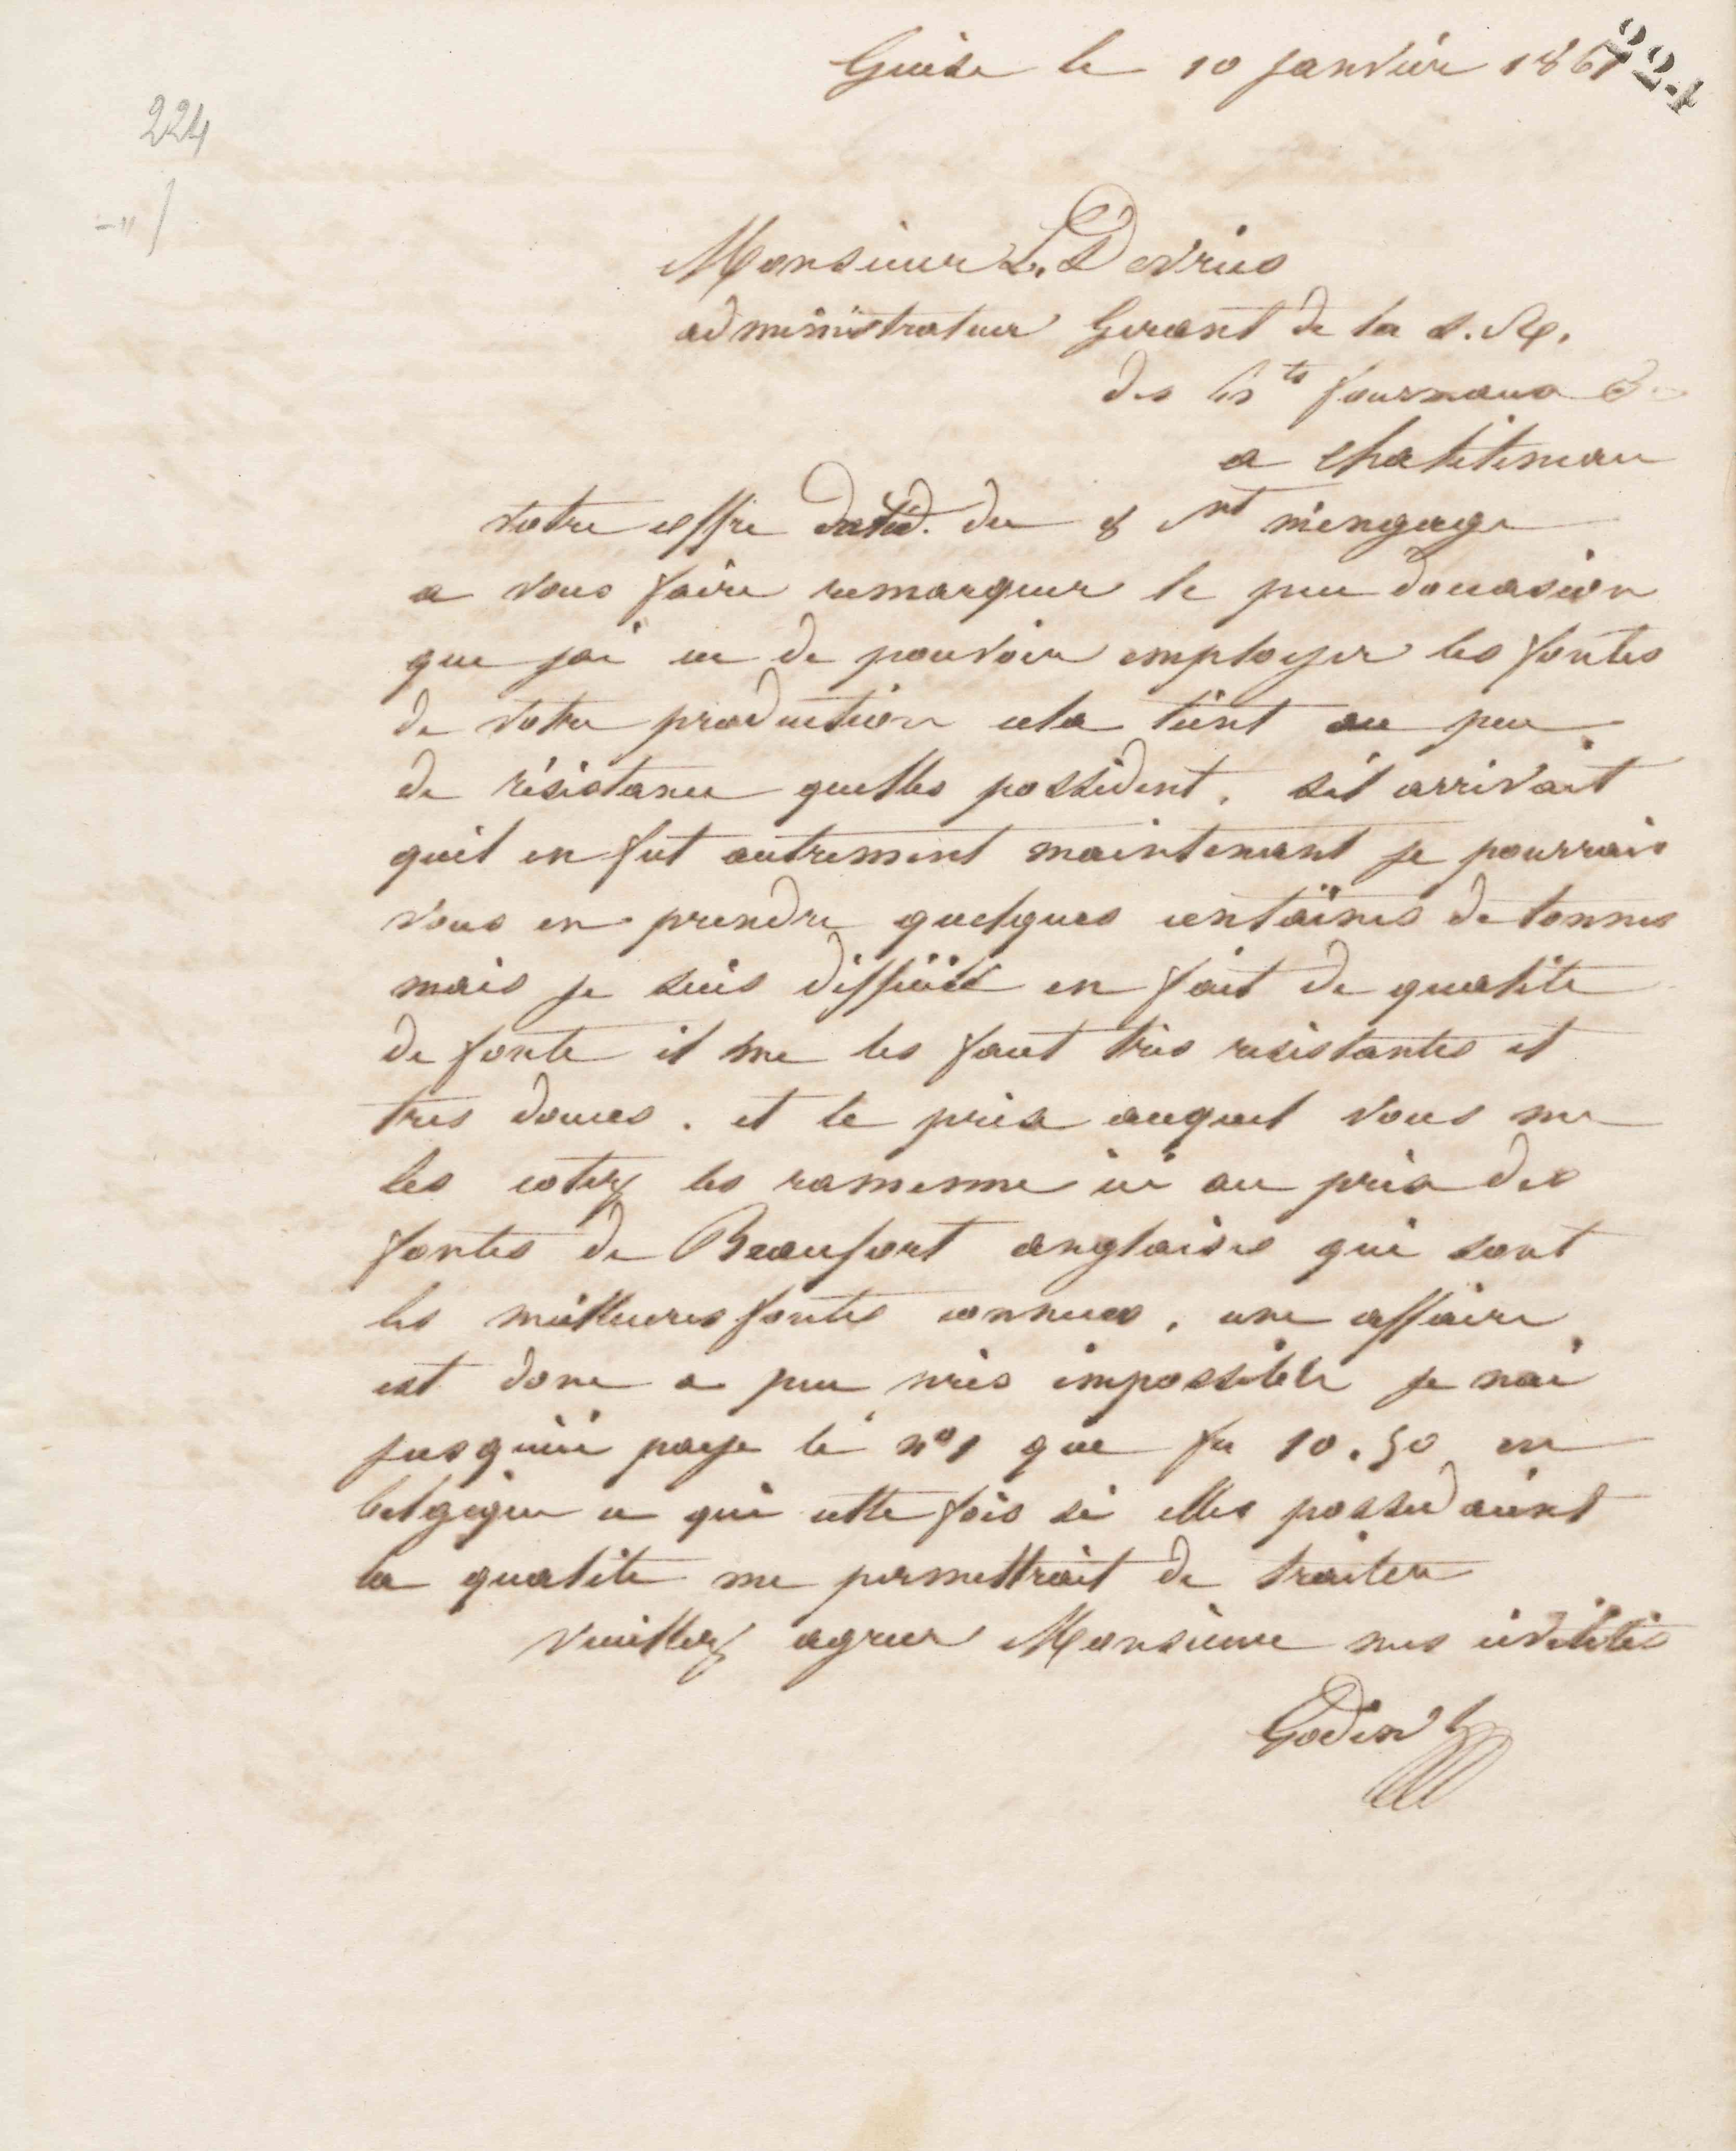 Guise le 10 janvier 1861
224
224
Monsieur L. Devries
administrateur Gerant de la S. A.
des hts fourneaux &
a Chatelineau
votre offre datée du 8 ct m'engage
a vous faire remarquer le peu doccasion
que jai eu de pouvoir employer les fontes
de votre production cela tient au peu
de résistance quelles possèdent. sil arrivait
quil en fut autrement maintenant je pourrais
vous en prendre quelques centaines de tonnes
mais je suis difficile en fait de qualite
de fonte il me les faut très resistantes et
tres douces. et le prix auquel vous me
les cotez les ramenne ici au prix des
fontes de Beaufort anglaises qui sont
les meilleures fontes connues. une affaire
est donc a peu près impossible je nai
jusquici payé le n° 1 que fr 10.50 en
belgique ce qui cette fois si elles possedaient
la qualite me permettrait de traiter
veuillez agreer Monsieur mes civilités
Godin